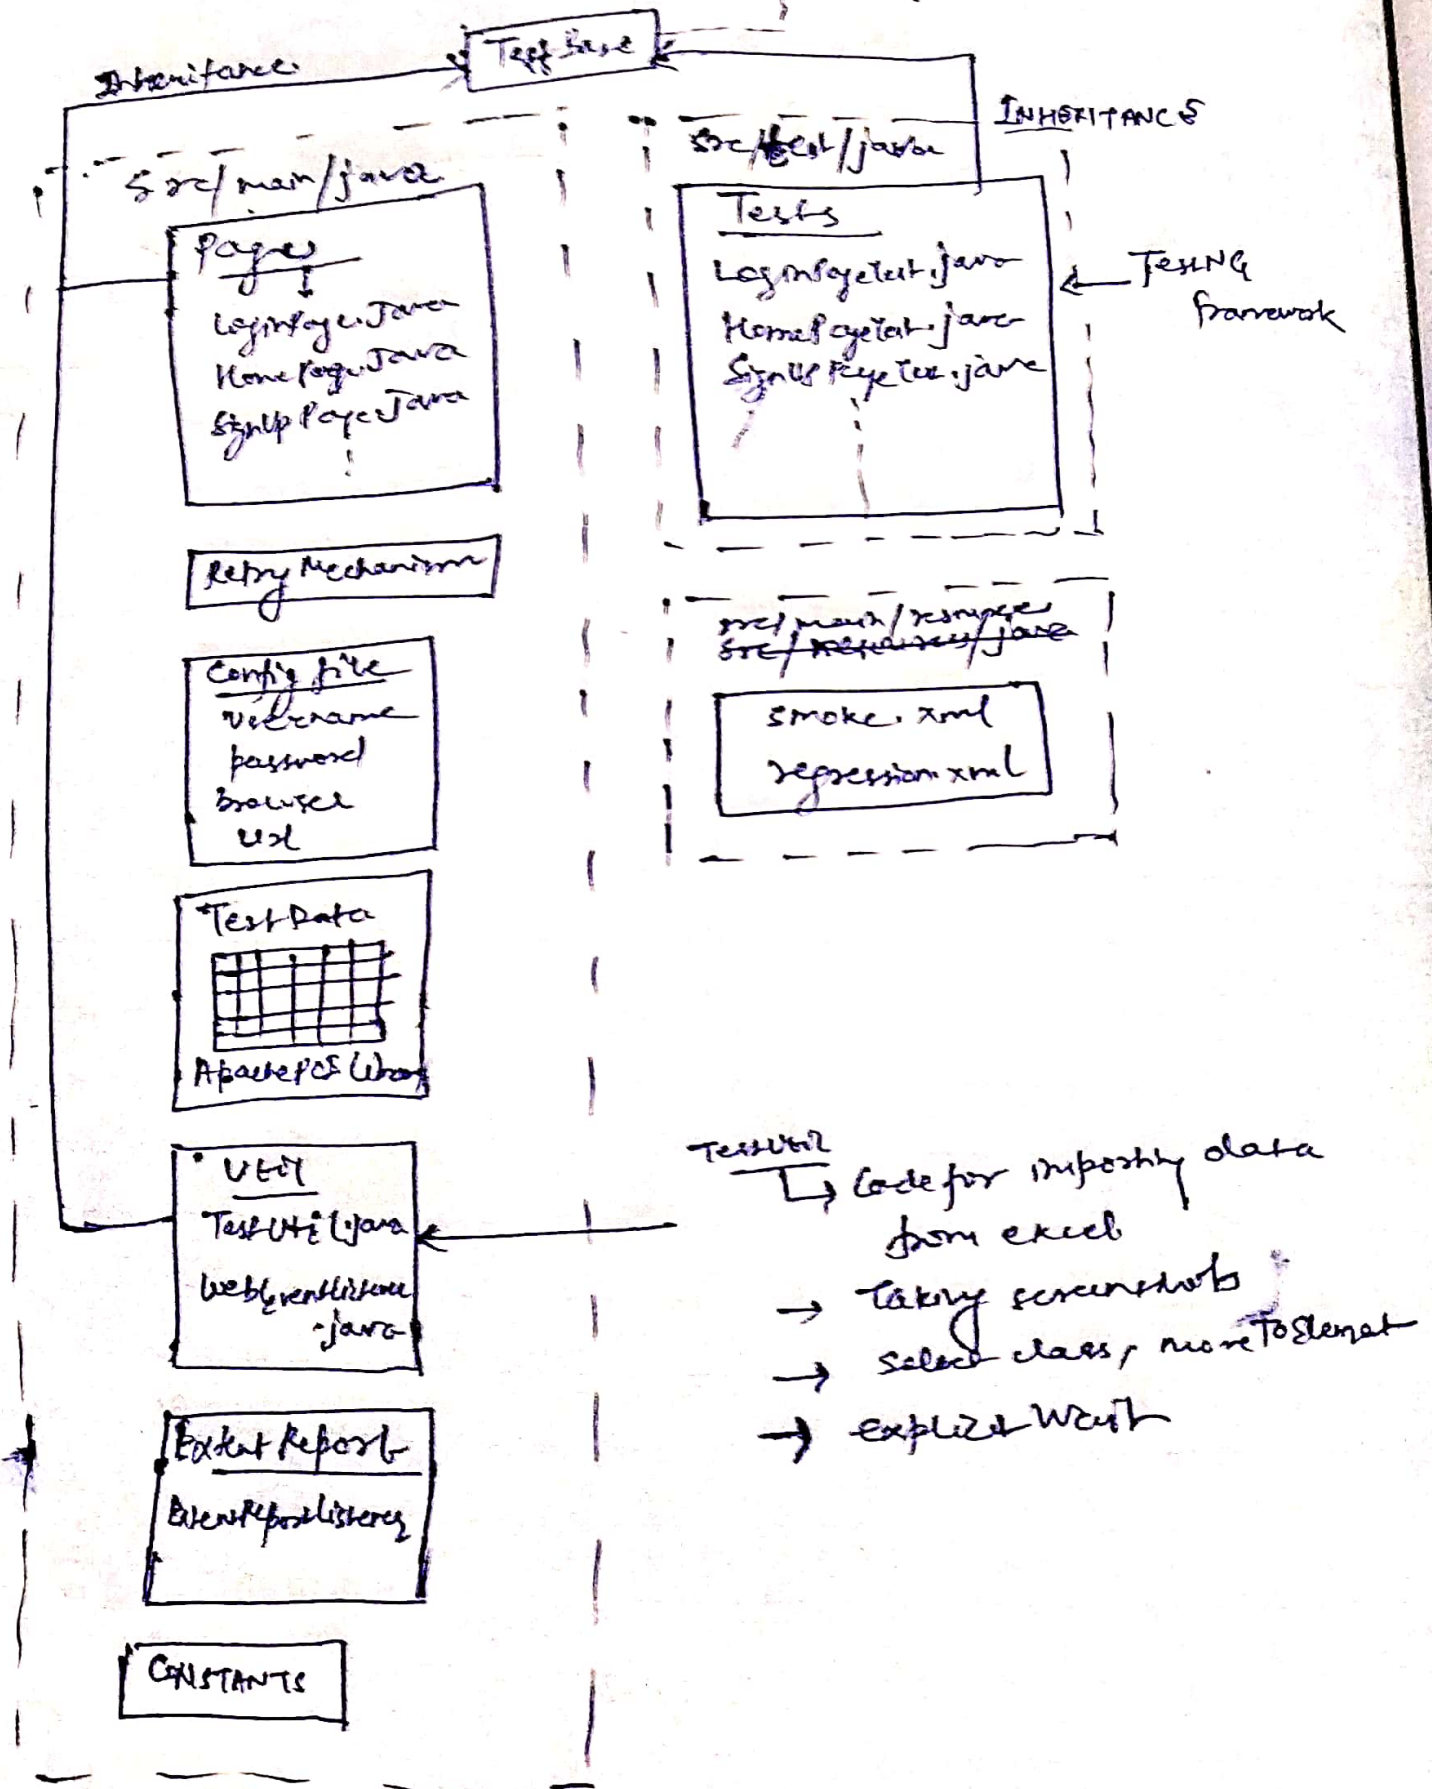 Test Base
Inheritance
INHERITANCE
src/main/java
Pages
LoginPage.Java
HomePage.Java
SignUpPage.Java
Retry Mechanism
Config file
username
password
browser
url
Test Data
Apache POI library
Util
TestUtil.java
WebEventListener
.java
Extent Report
ExtentReportListener
CONSTANTS
src/test/java
Tests
LoginPageTest.java
HomePageTest.java
SignUpPageTest.java
TestNG
framework
src/main/resources
src/resources/java
smoke.xml
regression.xml
TestUtil
Code for importing data
from excel
Taking screenshots
Select class, moveToElement
explicit Wait